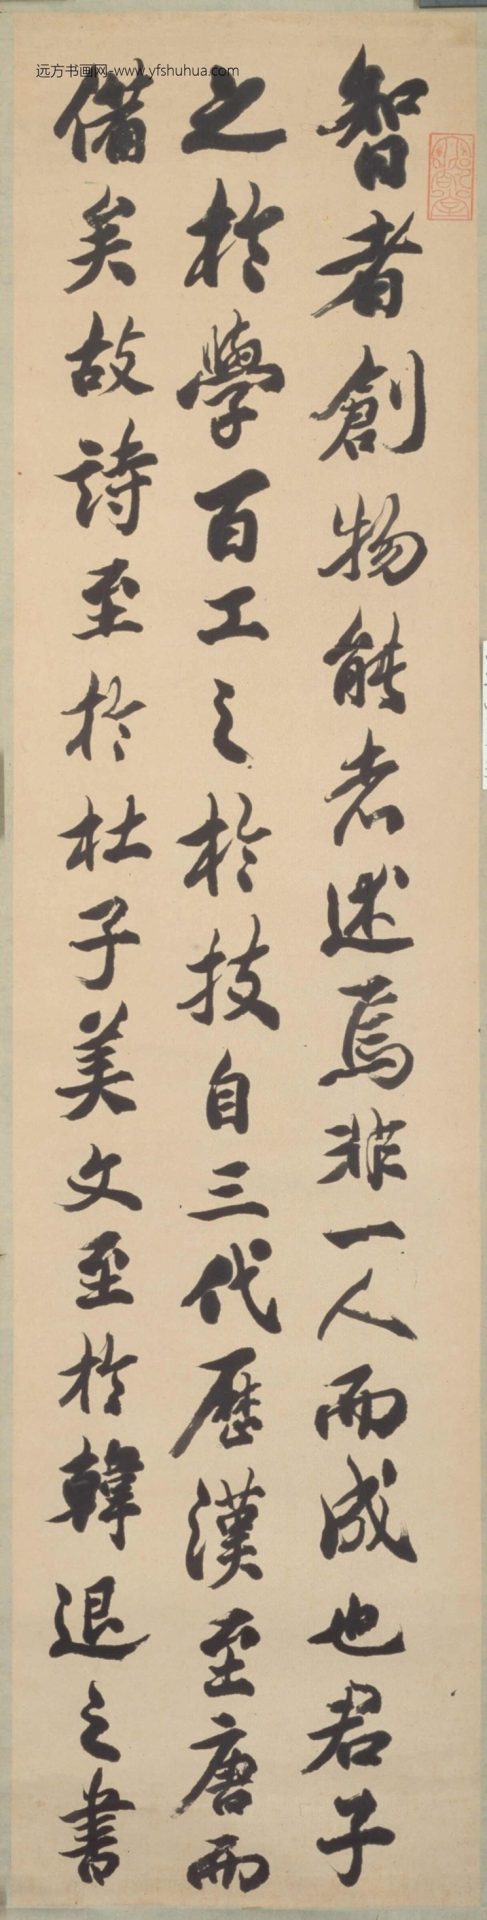 远方书画网-www.yfshuhua.com
智者創物能者述焉非一人而成也君子
之於學百工之於技自三代歷漢至唐而
備矣故詩至於杜子美文至於韓退之書